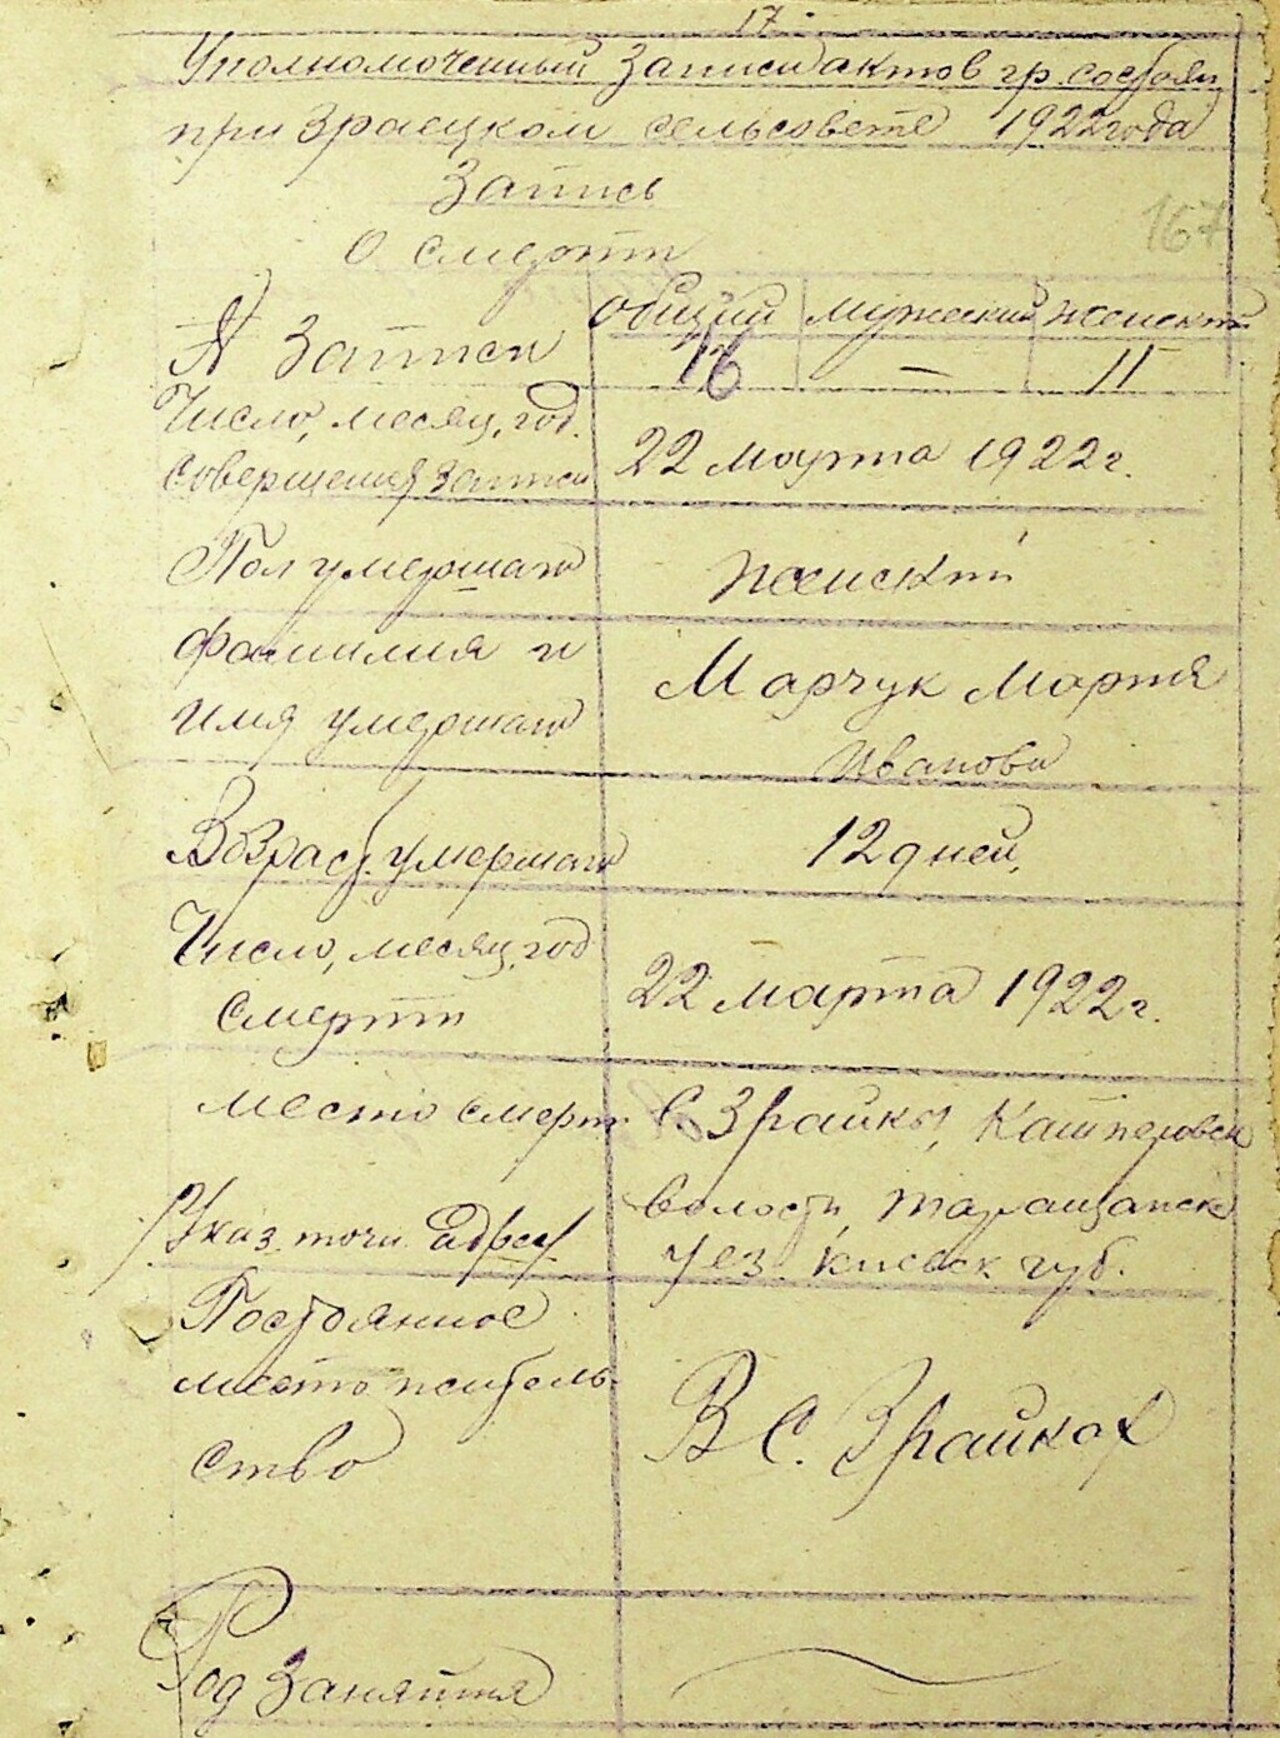 17.
Уполномоченный Записи актов гр. состоян
при Зраецком сельсовете 1922 года
Запись
О смерти
167
№ Записи общий мужеский женский
16 — 11
Число, месяц, год.
совершения записи 22 марта 1922 г.
Пол умершаго женский
Фамилия и Марчук Мария
имя умершаго Иванова
Возраст. умершаго 12 дней,
Число, месяц, год
смерти 22 марта 1922 г.
место смерт. С. Зрайки, Кашперовск
волости, Таращанск
/Указ. точн. адрес/ уез. Киевск. губ.
Постоянное
место житель-
ство В С. Зрайках
Род Занятия